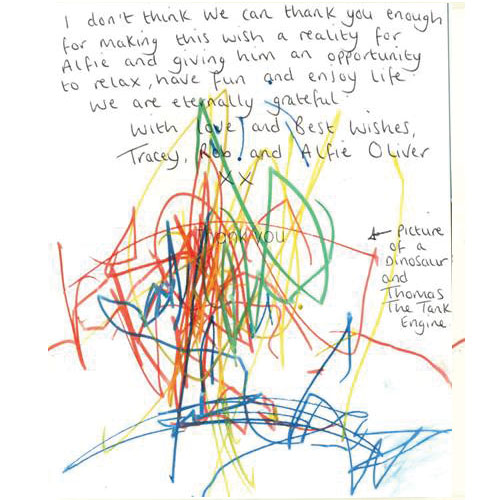 I don't think we can thank you enough
for making this wish a reality for
Alfie and giving him an opportunity
to relax, have fun and enjoy life
We are eternally grateful
With love and Best Wishes,
Tracey, Rob and Alfie Oliver
XX
Thank you
← Picture
of a
Dinosaur
and
Thomas
The Tank
Engine.